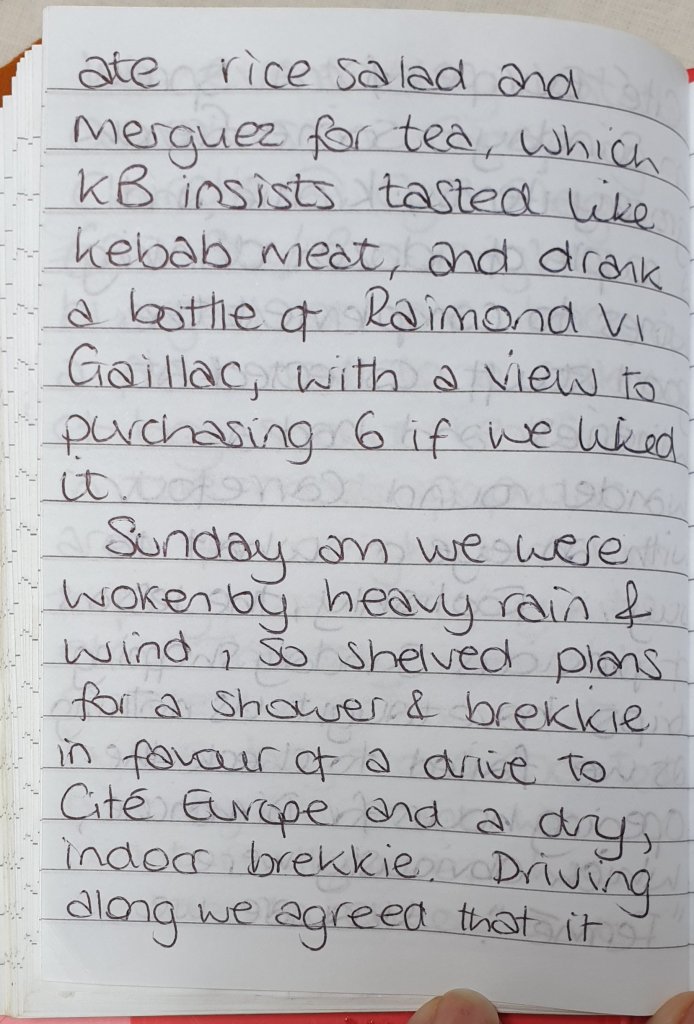 ate rice salad and
Merguez for tea, which
KB insists tasted like
kebab meat, and drank
a bottle of Raimond VI
Gaillac, with a view to
purchasing 6 if we liked
it.
Sunday am we were
woken by heavy rain &
wind, so shelved plans
for a shower & brekkie
in favour of a drive to
Cité Europe and a dry,
indoor brekkie. Driving
along we agreed that it